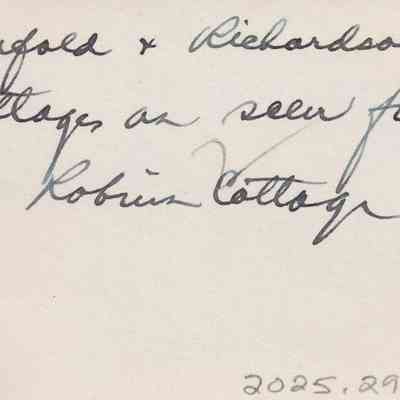 nfold & Richardso
ttages as seen f
Robins Cottage
2025.29